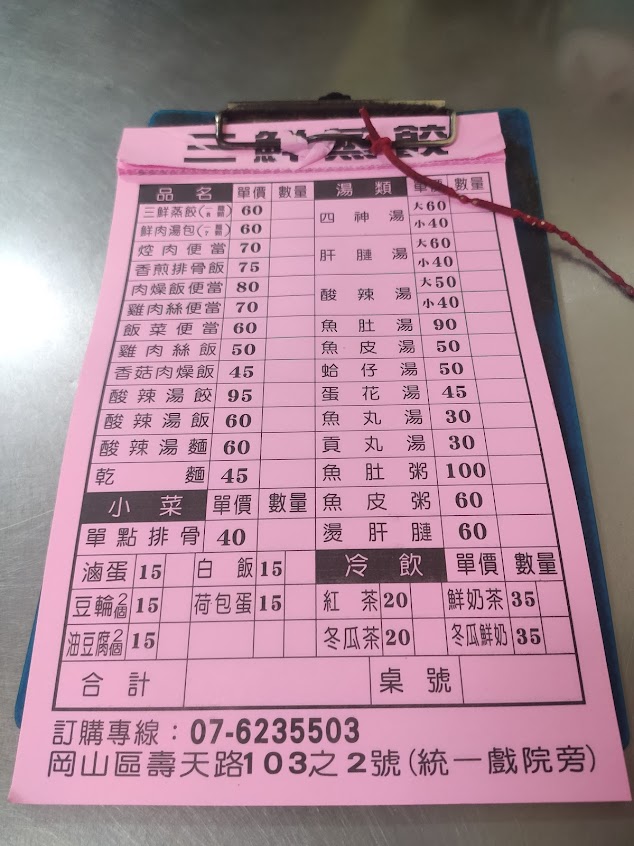 三鮮蒸餃
品名 單價 數量 湯類 單價 數量
三鮮蒸餃 60 四神湯 大60
鮮肉湯包 60 小40
焢肉便當 70 肝腱湯 大60
香煎排骨飯 75 小40
肉燥飯便當 80 酸辣湯 大50
雞肉絲便當 70 小40
飯菜便當 60 魚肚湯 90
雞肉絲飯 50 魚皮湯 50
香菇肉燥飯 45 蛤仔湯 50
酸辣湯餃 95 蛋花湯 45
酸辣湯飯 60 魚丸湯 30
酸辣湯麵 60 貢丸湯 30
乾麵 45 魚肚粥 100
小菜 單價 數量 魚皮粥 60
單點排骨 40 燙肝腱 60
滷蛋 15 白飯 15 冷飲 單價 數量
豆輪2個 15 荷包蛋 15 紅茶 20 鮮奶茶 35
油豆腐2個 15 冬瓜茶 20 冬瓜鮮奶 35
合計 桌號
訂購專線：07-6235503
岡山區壽天路103之2號(統一戲院旁)